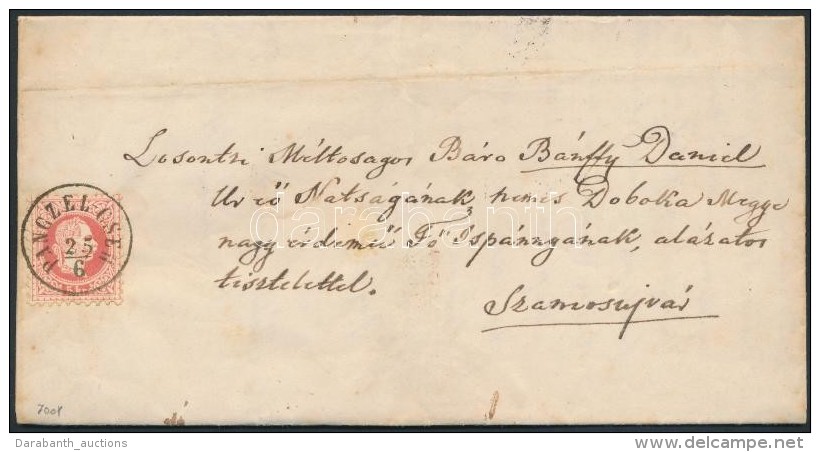 Losontzi Méltosagos Báro Bánffy Daniel
Ur eő Natságának, nemes Doboka Megye
nagy érdemű Fő Ispánnyának, alázatos
tisztelettel.
Szamosujvár
PANCZEL-CSEH
25
6
darabanth
7008
Darabanth_auctions
www.delcampe.net